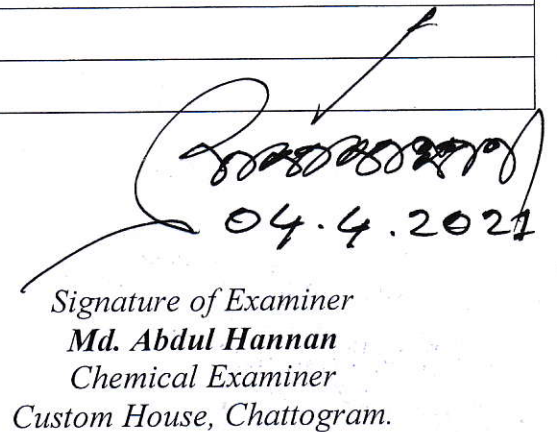 04.4.2021
Signature of Examiner
Md. Abdul Hannan
Chemical Examiner
Custom House, Chattogram.